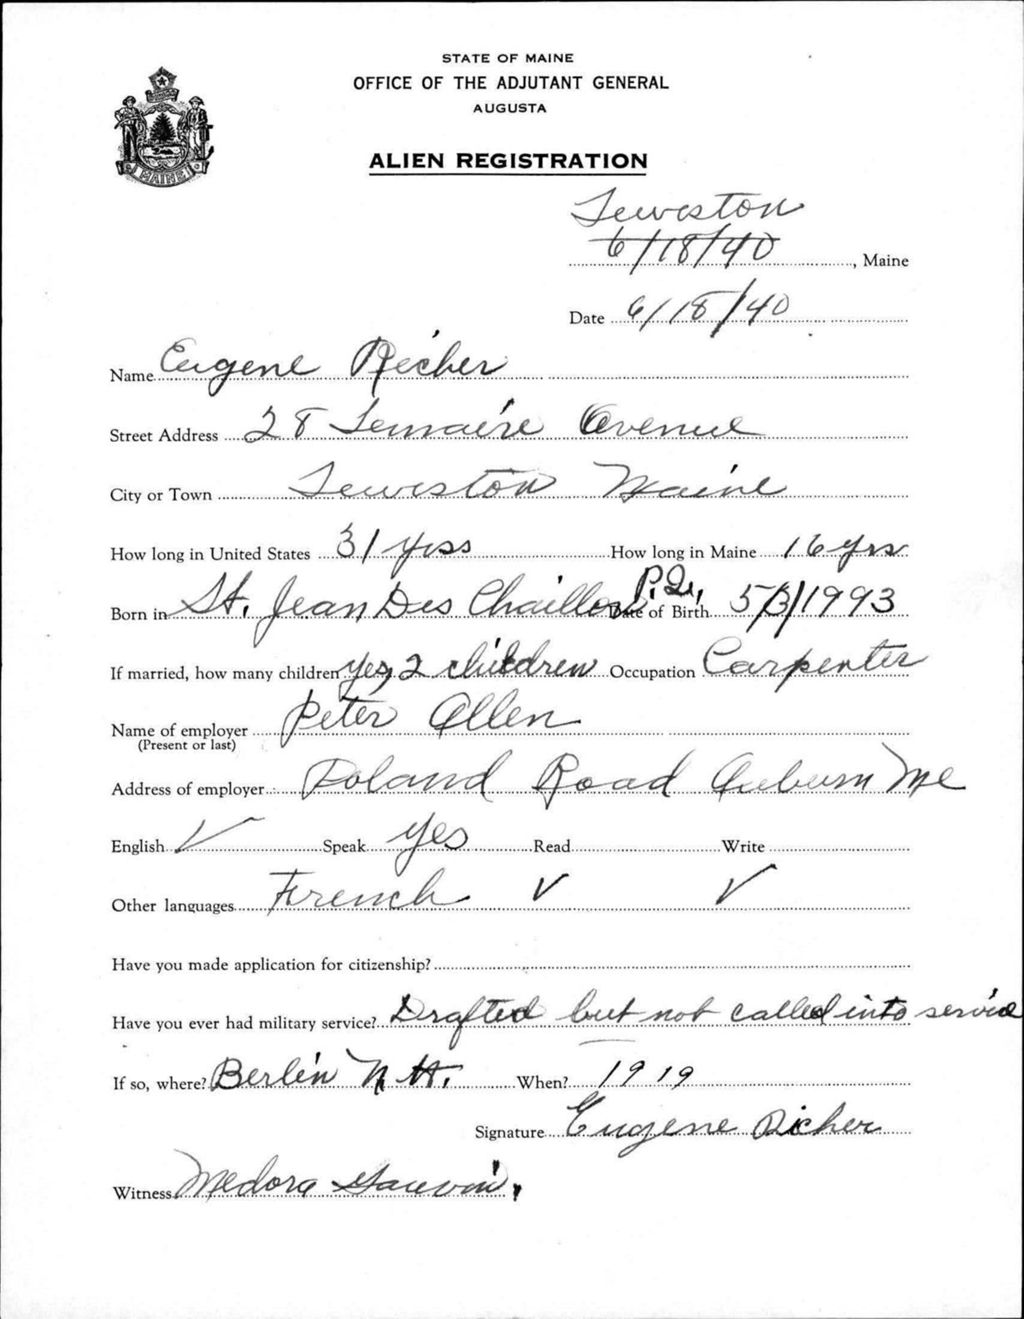 STATE OF MAINE
OFFICE OF THE ADJUTANT GENERAL
AUGUSTA
MAINE
ALIEN REGISTRATION
Lewiston
6/18/40, Maine
Date 6/18/40
Name Eugene Richer
Street Address 28 Lemaire Avenue
City or Town Lewiston Maine
How long in United States 31 yrs How long in Maine 16 yrs
Born in St. Jean Des Chaillons P.Q. Date of Birth 5/3/1993
If married, how many children yes, 2 children Occupation Carpenter
Name of employer Peter Allen
(Present or last)
Address of employer Poland Road Auburn Me
English ✓ Speak yes Read Write
Other languages French ✓ ✓
Have you made application for citizenship?
Have you ever had military service? Drafted but not called into service
If so, where? Berlin N.H. When? 1919
Signature Eugene Richer
Witness Medora